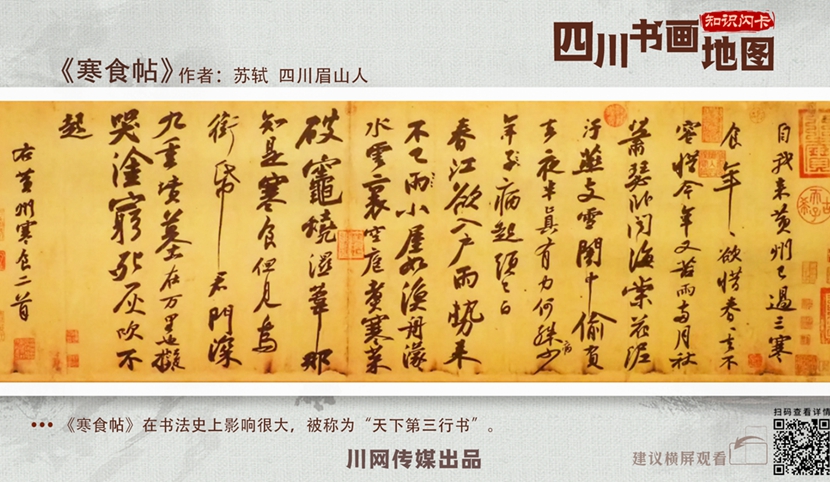 四川书画地图
知识闪卡
《寒食帖》作者：苏轼 四川眉山人
自我来黄州已過三寒
食年〻欲惜春春不
容惜今年又苦雨兩月秋
蕭瑟卧聞海棠花泥
汙燕支雪闇中偷負
去夜半真有力何殊少病
年子病起頭已白
春江欲入户雨勢来
不已雨小屋如漁舟濛〻
水雲裏空庖煮寒菜
破竈燒濕葦那
知是寒食但見烏
銜帋君門深
九重墳墓在万里也擬
哭塗窮死灰吹不
起
右黄州寒食二首
《寒食帖》在书法史上影响很大，被称为“天下第三行书”。
川网传媒出品
扫码查看详情
建议横屏观看